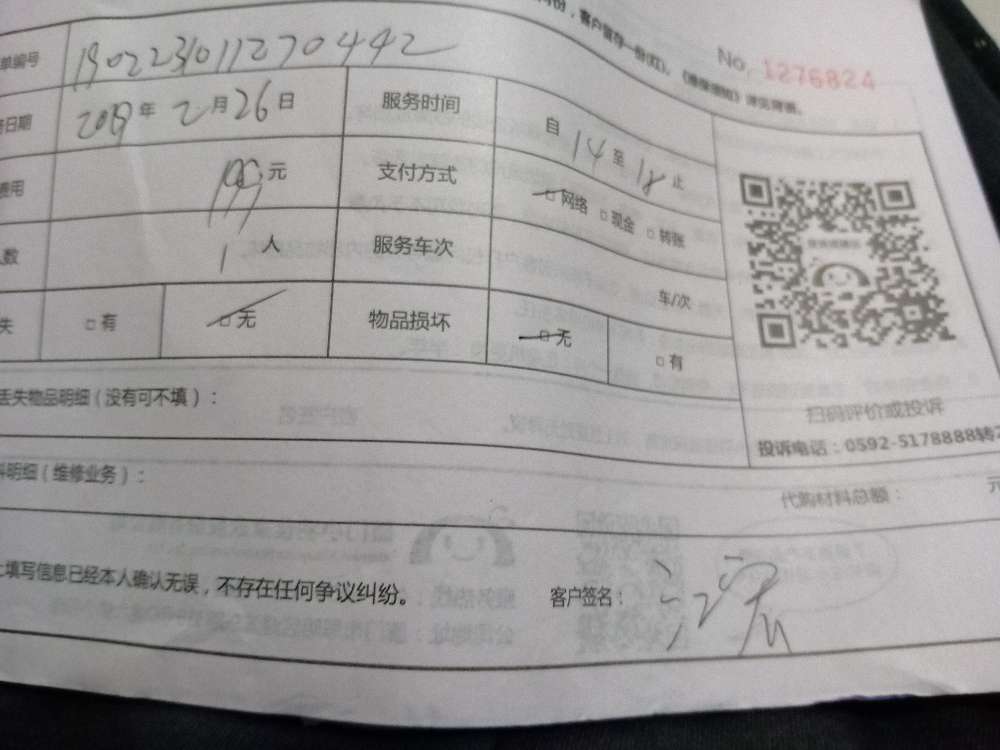 份，客户留存一份(红)。
No. 1276824
单编号 190223011270442
日期 2019年 2月26日 服务时间 自 14 至 18 止
费用 199元 支付方式 □网络 □现金 □转账
数 1 人 服务车次 车/次
失 □有 □无 物品损坏 □无 □有
丢失物品明细（没有可不填）：
扫码评价或投诉
投诉电话：0592-5178888转2
料明细（维修业务）：
代购材料总额： 元
填写信息已经本人确认无误，不存在任何争议纠纷。 客户签名：